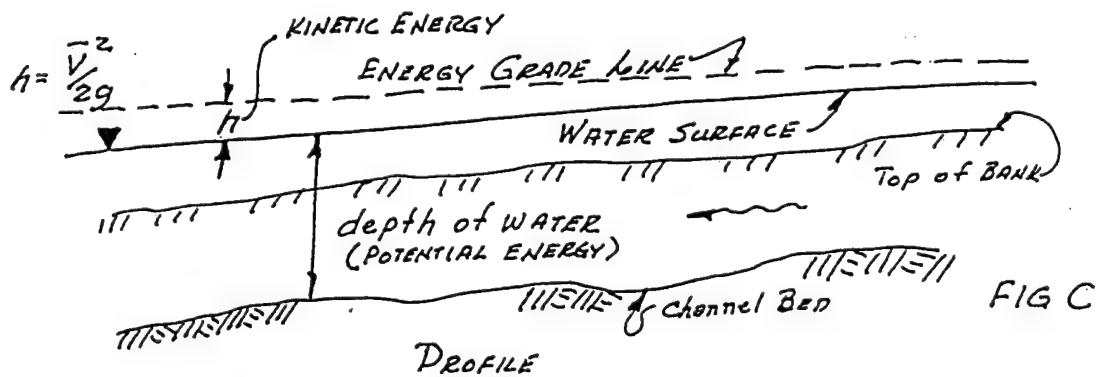 KINETIC ENERGY
h = V̄²/2g
ENERGY GRADE LINE
h
WATER SURFACE
TOP of BANK
depth of WATER
(POTENTIAL ENERGY)
Channel BED
FIG C
PROFILE